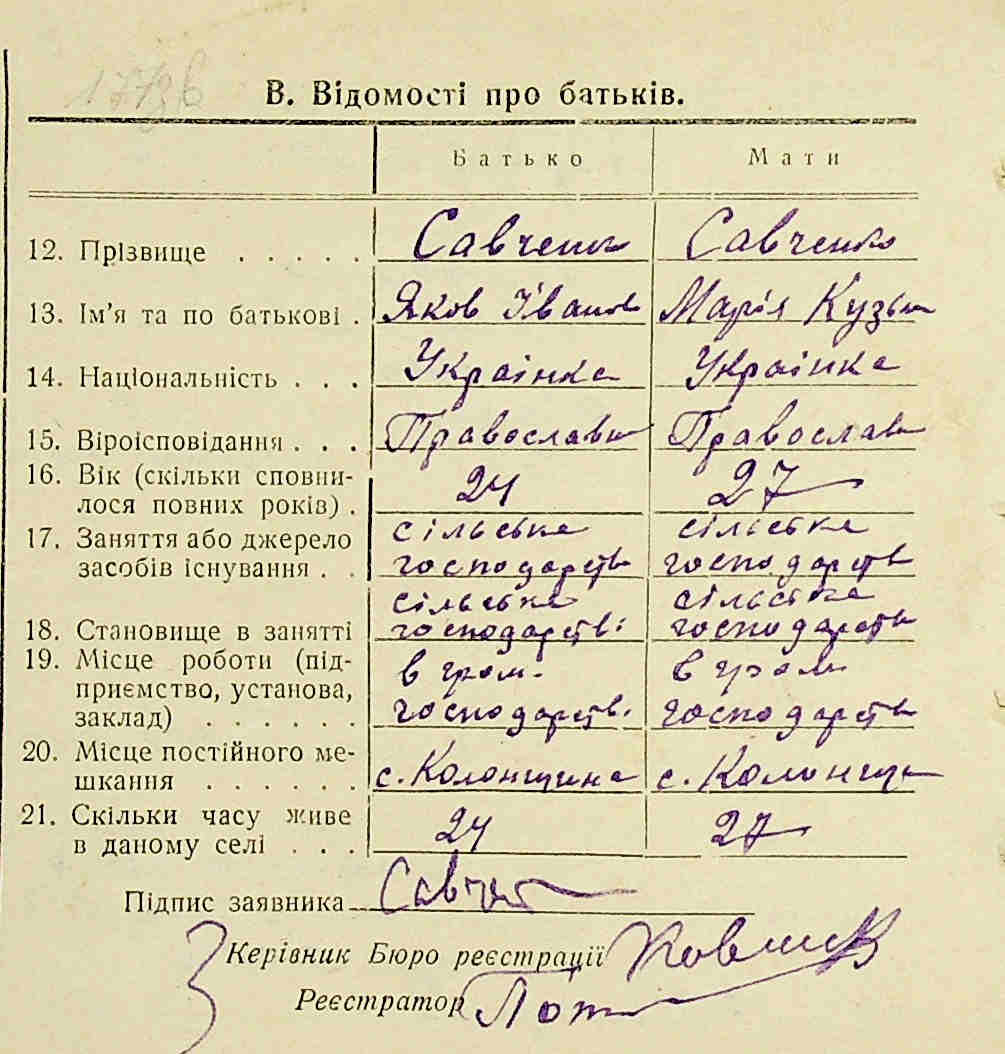 В. Відомості про батьків.
Батько Мати
12. Прізвище . . . . . Савченко Савченко
13. Ім'я та по батькові . Яков Іванов Марія Кузьм
14. Національність . . . Українка Українка
15. Віроісповідання . . . Православн Православ
16. Вік (скільки сповни-
лося повних років) . 24 27
17. Заняття або джерело сільське сільське
засобів існування . . господарств господарств
сільське сільське
18. Становище в занятті господарств: господарств
19. Місце роботи (під- в гром. в гром
приємство, установа,
заклад) . . . . . . господарств. господарств
20. Місце постійного ме-
шкання . . . . . . с. Колонщина с. Колонщ
21. Скільки часу живе
в даному селі . . . 24 27
Підпис заявника Савч
Керівник Бюро реєстрації
Реєстратор